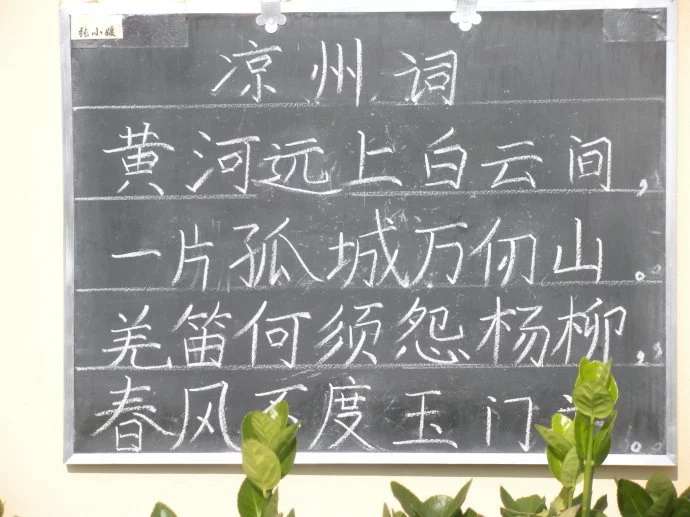 张小媛
凉州词
黄河远上白云间,
一片孤城万仞山。
羌笛何须怨杨柳,
春风不度玉门。